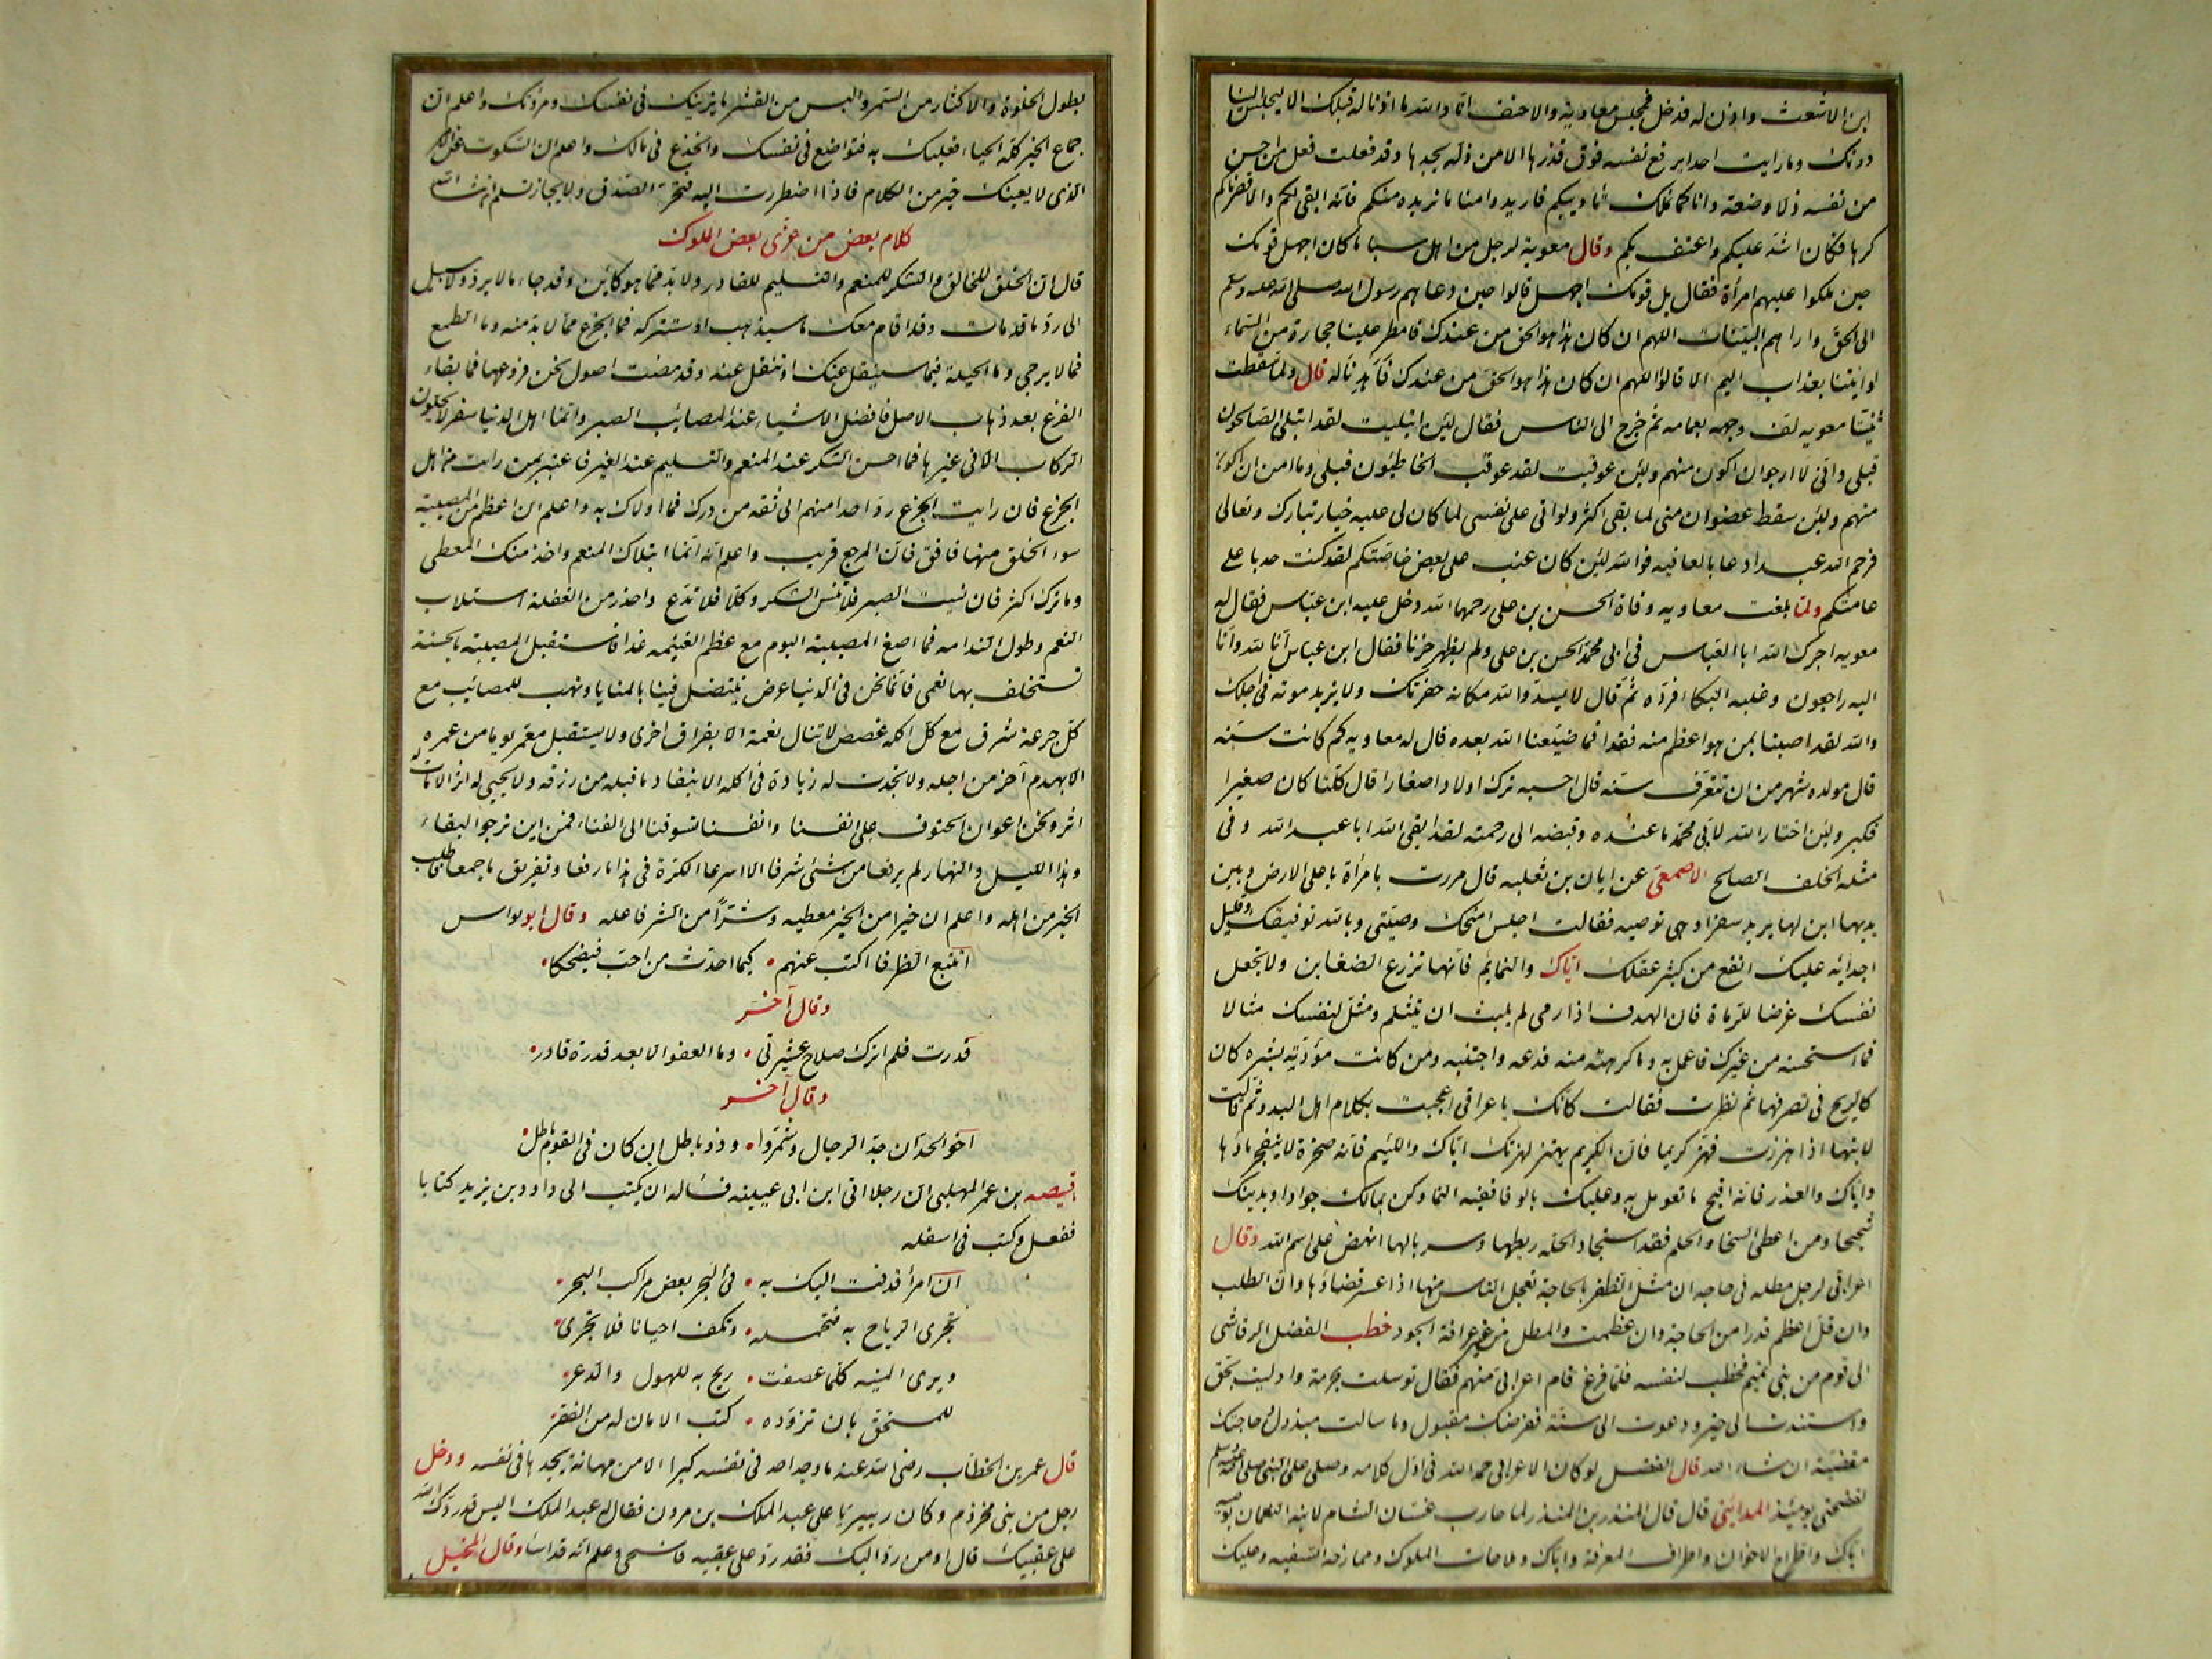 ابن الاشعث واذن له فدخل فجلس معاوية والاحنف اما والله ما اذنا له قبلك الا ليجلس الينا
دونك وما رايت احدا يرفع نفسه فوق قدرها الا من ذلة يجدها وقد فعلت فعل من احس
من نفسه ذلا وضعة وانا كما نملك تأديبكم فاريدوا منا ما نريده منكم فانه ابقى لكم والا قصرناكم
كرها فكان اشد عليكم واعنف بكم وقال معوية لرجل من اهل سبا ما كان اجهل قومك
حين ملكوا عليهم امرأة فقال بل قومك اجهل قالوا حين دعاهم رسول الله صلى الله عليه وسلم
الى الحق واراهم البينات اللهم ان كان هذا هو الحق من عندك فامطر علينا حجارة من السماء
او ائتنا بعذاب اليم الا قالوا اللهم ان كان هذا هو الحق من عندك فاهدنا له قال ولما سقطت
ثنيتا معويه لف وجهه بعمامه ثم خرج الى الناس فقال لئن ابتليت لقد ابتلى الصالحون
قبلى وانى لا ارجو ان اكون منهم ولئن عوقبت لقد عوقب الخاطئون قبلى وما امن ان اكون
منهم ولئن سقط عضوان منى لما بقى اكثر ولو اتى على نفسى لما كان لى عليه خيار تبارك وتعالى
فرحم الله عبدا دعا بالعافيه فوالله لئن كان عتب على بعض خاصتكم لقد كنت حدبا على
عامتكم ولما بلغت معاويه وفاة الحسن بن على رحمهما الله دخل عليه ابن عباس فقال له
معويه اجرك الله ابا العباس فى ابى محمد الحسن بن على ولم يظهر حزنا فقال ابن عباس انا لله وانا
اليه راجعون وغلبه البكاء فرده ثم قال لا يسد والله مكانه حفرتك ولا يزيد موته فى اجلك
والله لقد اصبنا بمن هو اعظم منه فقدا فما ضيعنا الله بعده قال له معاويه كم كانت سنه
قال مولده شهر من ان تتعرف سنه قال احسبه ترك اولادا صغارا قال كلنا كان صغيرا
فكبر ولئن اختار الله لابى محمد ما عنده وقبضه الى رحمته لقد ابقى الله ابا عبد الله وفى
مثله الخلف الصالح الاصمعى عن ابان بن تغلبه قال مررت بامرأة باعلى الارض وبين
يديها ابن لها يريد سفرا وهى توصيه فقالت اجلس امنحك وصيتى وبالله توفيقك وقليل
اجدائه عليك انفع من كثير عقلك اياك والنمايم فانها تزرع الضغاين ولا تجعل
نفسك غرضا للرماة فان الهدف اذا رمى لم يلبث ان ينثلم ومثل لنفسك مثالا
فما استحسنه من غيرك فاعمل به وما كرهته منه فدعه واجتنبه ومن كانت مودته بشره كان
كالريح فى تصرفها ثم نظرت فقالت كانك يا عراقى اعجبت بكلام اهل البدو ثم قالت
لابنها اذا هززت فهز كريما فان الكريم يهتز لهزتك اياك واللئيم فانه صخرة لا ينفجر ماؤها
واياك والغدر فانه اقبح ما تعومل به وعليك بالوفا ففيه النما وكن بمالك جوادا وبدينك
شحيحا ومن اعطى السخا والحلم فقد استجاد الحله ريطها وسربالها انهض على اسم الله وقال
اعرابى لرجل مطله فى حاجه ان مثل الظفر بالحاجة تعجل الناس منها اذا عسر قضاؤها وان الطلب
وان قل اعظم قدرا من الحاجة وان عظمت والمطل من غير عرافة الجود خطب الفضل الرقاشى
الى قوم من بنى تميم فخطب لنفسه فلما فرغ قام اعرابى منهم فقال توسلت بحرمة وادليت بحق
واستندت الى خير ودعوت الى سنة ففرضك مقبول وما سالت مبذول وحاجتك
مقضية ان شاء الله قال الفضل لو كان الاعرابى حمد الله فى اول كلامه وصلى على النبى صلى الله عليه وسلم
لفضحنى يومئذ المداينى قال قال المنذر بن المنذر لما حارب غسان الشام لابنه النعمان يوصيه
اياك واطراح الاخوان واطراف المعرفة واياك وملاحات الملوك وممازحة السفيه وعليك
بطول الخلوة والاكثار من السمر والبس من القشر ما يزينك فى نفسك ومروتك واعلم ان
جماع الخير كله الحياء فعليك به فتواضع فى نفسك وانخدع فى مالك واعلم ان السكوت عن الامر
الذى لا يعينك خير من الكلام فاذا اضطررت اليه فتحر الصدق والايجاز تسلم ان شاء الله
كلام بعض من عزى بعض الملوك
قال ان الخلق للخالق والشكر للمنعم والتسليم للقادر ولا بد مما هو كائن وقد جاء ما لا يرد ولا سبيل
الى رد ما قد مات وقد اقام معك ما سيذهب او ستتركه فما الجزع مما لا بد منه وما الطمع
فما لا يرجى وما الحيلة فيما سينتقل عنك او تنتقل عنه وقد مضت اصول نحن فروعها فما بقاء
الفرع بعد ذهاب الاصل فافضل الاشياء عند المصائب الصبر وانما اهل الدنيا سفر لا يحلون
الركاب الا فى غيرها فما احسن الشكر عند المنعم والتسليم عند الغير فاعتبر بمن رايت من اهل
الجزع فان رايت الجزع رد احدا منهم الى ثقه من درك فما اولاك به واعلم ان اعظم من المصيبة
سوء الخلق منها فافق فان المرجع قريب واعلم انه انما ابتلاك المنعم واخذ منك المعطى
وما ترك اكثر فان نسيت الصبر فلا تنس الشكر وكلا فلا تدع واحذر من الغفلة استلاب
النعم وطول الندامه فما اصغر المصيبة اليوم مع عظم الغنيمه غدا فاستقبل المصيبة بالحسنة
تستخلف بها نعمى فانما نحن فى الدنيا غرض ينتضل فينا بالمنايا ونهب للمصائب مع
كل جرعة شرق مع كل اكله غصص لا تنال نعمة الا بفراق اخرى ولا يستقبل معمر يوما من عمره
الا بهدم آخر من اجله ولا تجدت له زيادة فى اكله الا بنفاد ما قبله من رزقه ولا يحيى له اثر الا مات له
اثر ونحن اعوان الحتوف على انفسنا وانفسنا تسوقنا الى الفناء فمن اين نرجوا البقاء
وهذا الليل والنهار لم يرفعا من شئ شرفا الا اسرعا الكرة فى هذا ما رفعا وتفريق ما جمعا فاطلب
الخير من اهله واعلم ان خيرا من الخير معطيه وشرا من الشر فاعله وقال ابو نواس
اتتبع الظرفا اكتب عنهم • كيما احدث من احب فيضحكا •
وقال آخر
قدرت فلم اترك صلاح عشيرتى • وما العفو الا بعد قدرة قادر •
وقال آخر
اخو الجد ان جد الرجال وشمروا • وذو باطل ان كان فى القوم باطل •
اقبيصه بن عمر المهلبى ان رجلا اتى ابن ابى عيينه فساله ان يكتب الى داود بن يزيد كتابا
ففعل وكتب فى اسفله
ان امرأ قذفت اليك به • فى البحر بعض مراكب البحر •
تجرى الرياح به فتحمله • وتكف احيانا فلا تجرى •
ويرى المنيه كلما عصفت • ريح به للهول والذعر •
للمستحق بان تزوده • كتب الامان له من الفقر •
قال عمر بن الخطاب رضى الله عنه ما وجد احد فى نفسه كبرا الا من مهانة يجدها فى نفسه ودخل
رجل من بنى مخزوم وكان زبيريا على عبد الملك بن مرون فقال له عبد الملك اليس قد ردك الله
على عقبيك قال او من رد اليك فقد رد على عقبيه فاستحى وعلم انه قد اساء وقال المخبل